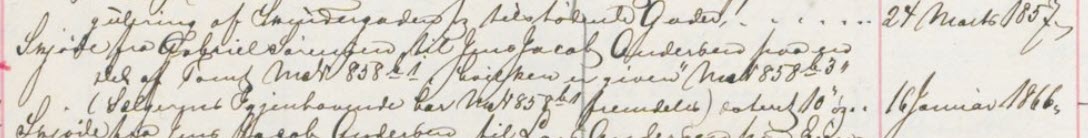 gulering af Skindergaden og tilstødende Gader, . . . . . . . 24 Marts 1857.
Skjøde fra Gabriel Sørensen til Jens Jacob Andersen paa en
Deel af Tomt Ma№ 858 b 1, hvilken er given "Ma№ 858 b 3"
(Sælgerens Iboende har Ma№ 858 b 1 fremdeles) 16 Januar 1866.
Skjøde fra Jens Jacob Andersen til Andersen